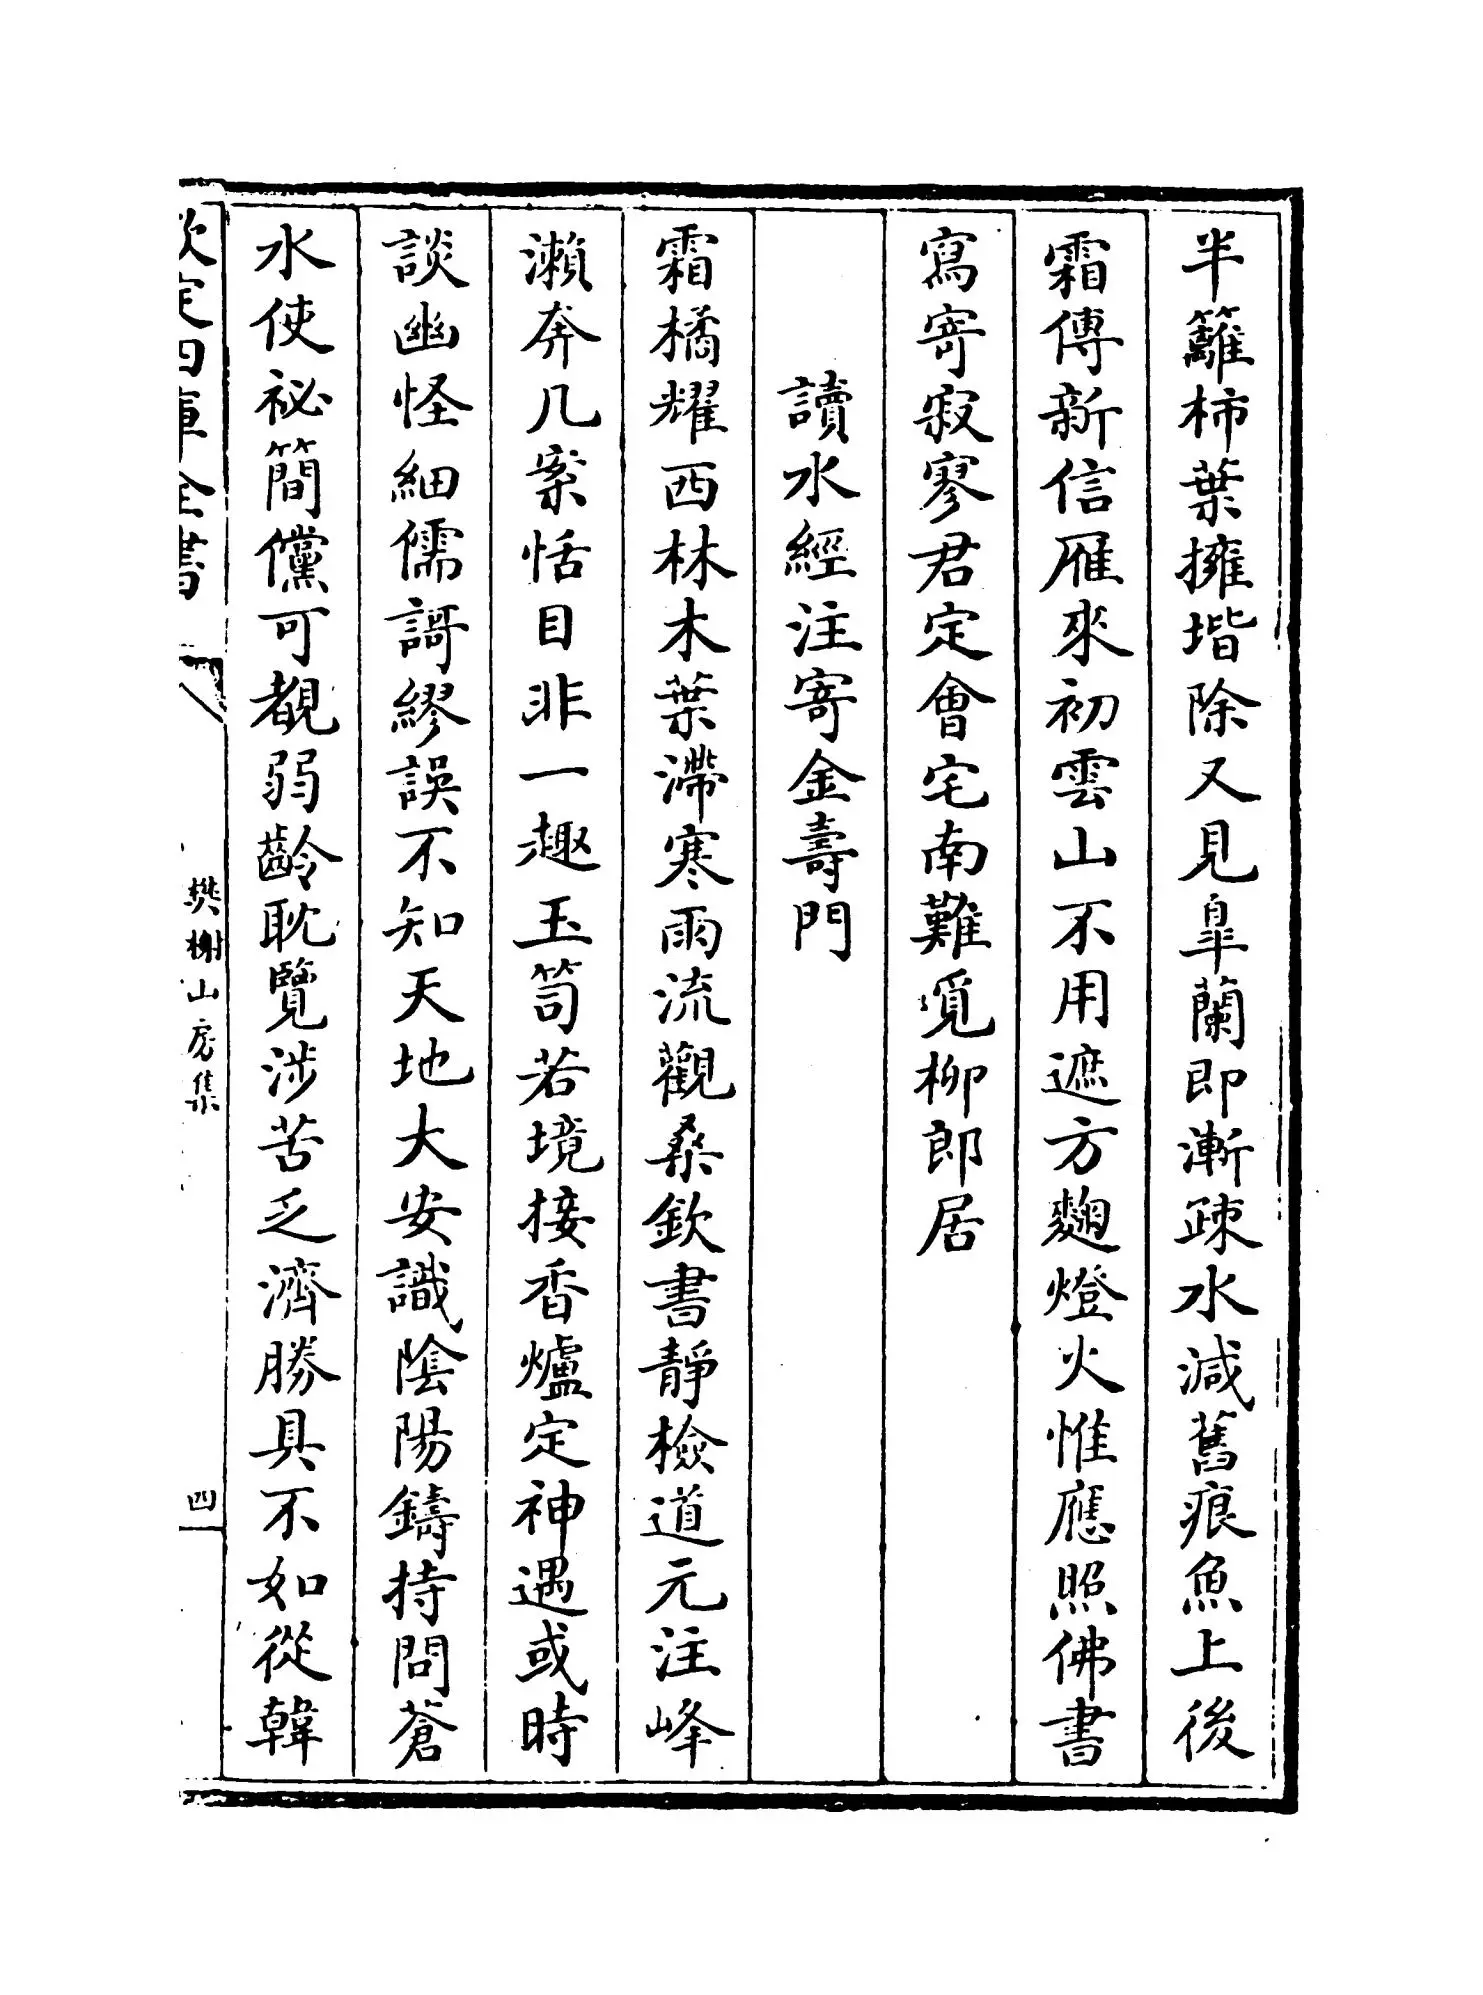 半籬柿葉擁堦除又見臯蘭即漸疎水減舊痕魚上後
霜傳新信雁來初雲山不用遮方麴燈火惟應照佛書
寫寄寂寥君定會宅南難覓柳郎居
讀水經注寄金壽門
霜橘耀西林木葉滯寒雨流觀桑欽書靜檢道元注峰
瀨奔几案恬目非一趣玉笥若境接香爐定神遇或時
談幽怪細儒謌繆誤不知天地大安識陰陽鑄持問蒼
水使祕簡儻可覩弱齡耽覽涉苦乏濟勝具不如從韓
欽定四庫全書
樊榭山房集
四